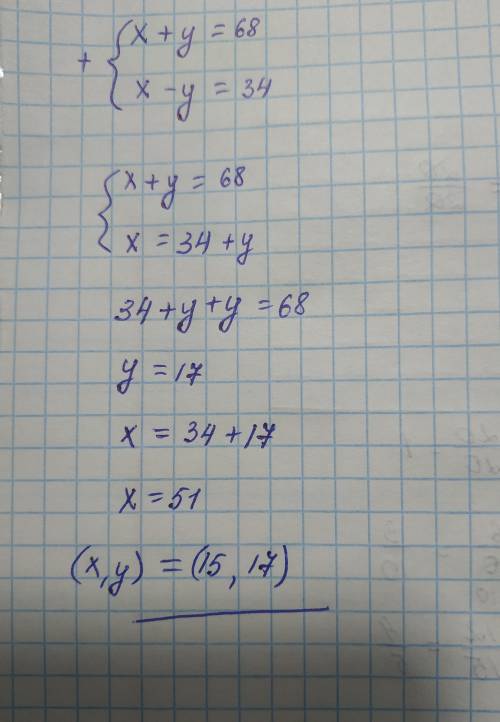 + { x + y = 68
x - y = 34
{ x + y = 68
x = 34 + y
34 + y + y = 68
y = 17
x = 34 + 17
x = 51
(x, y) = (15, 17)